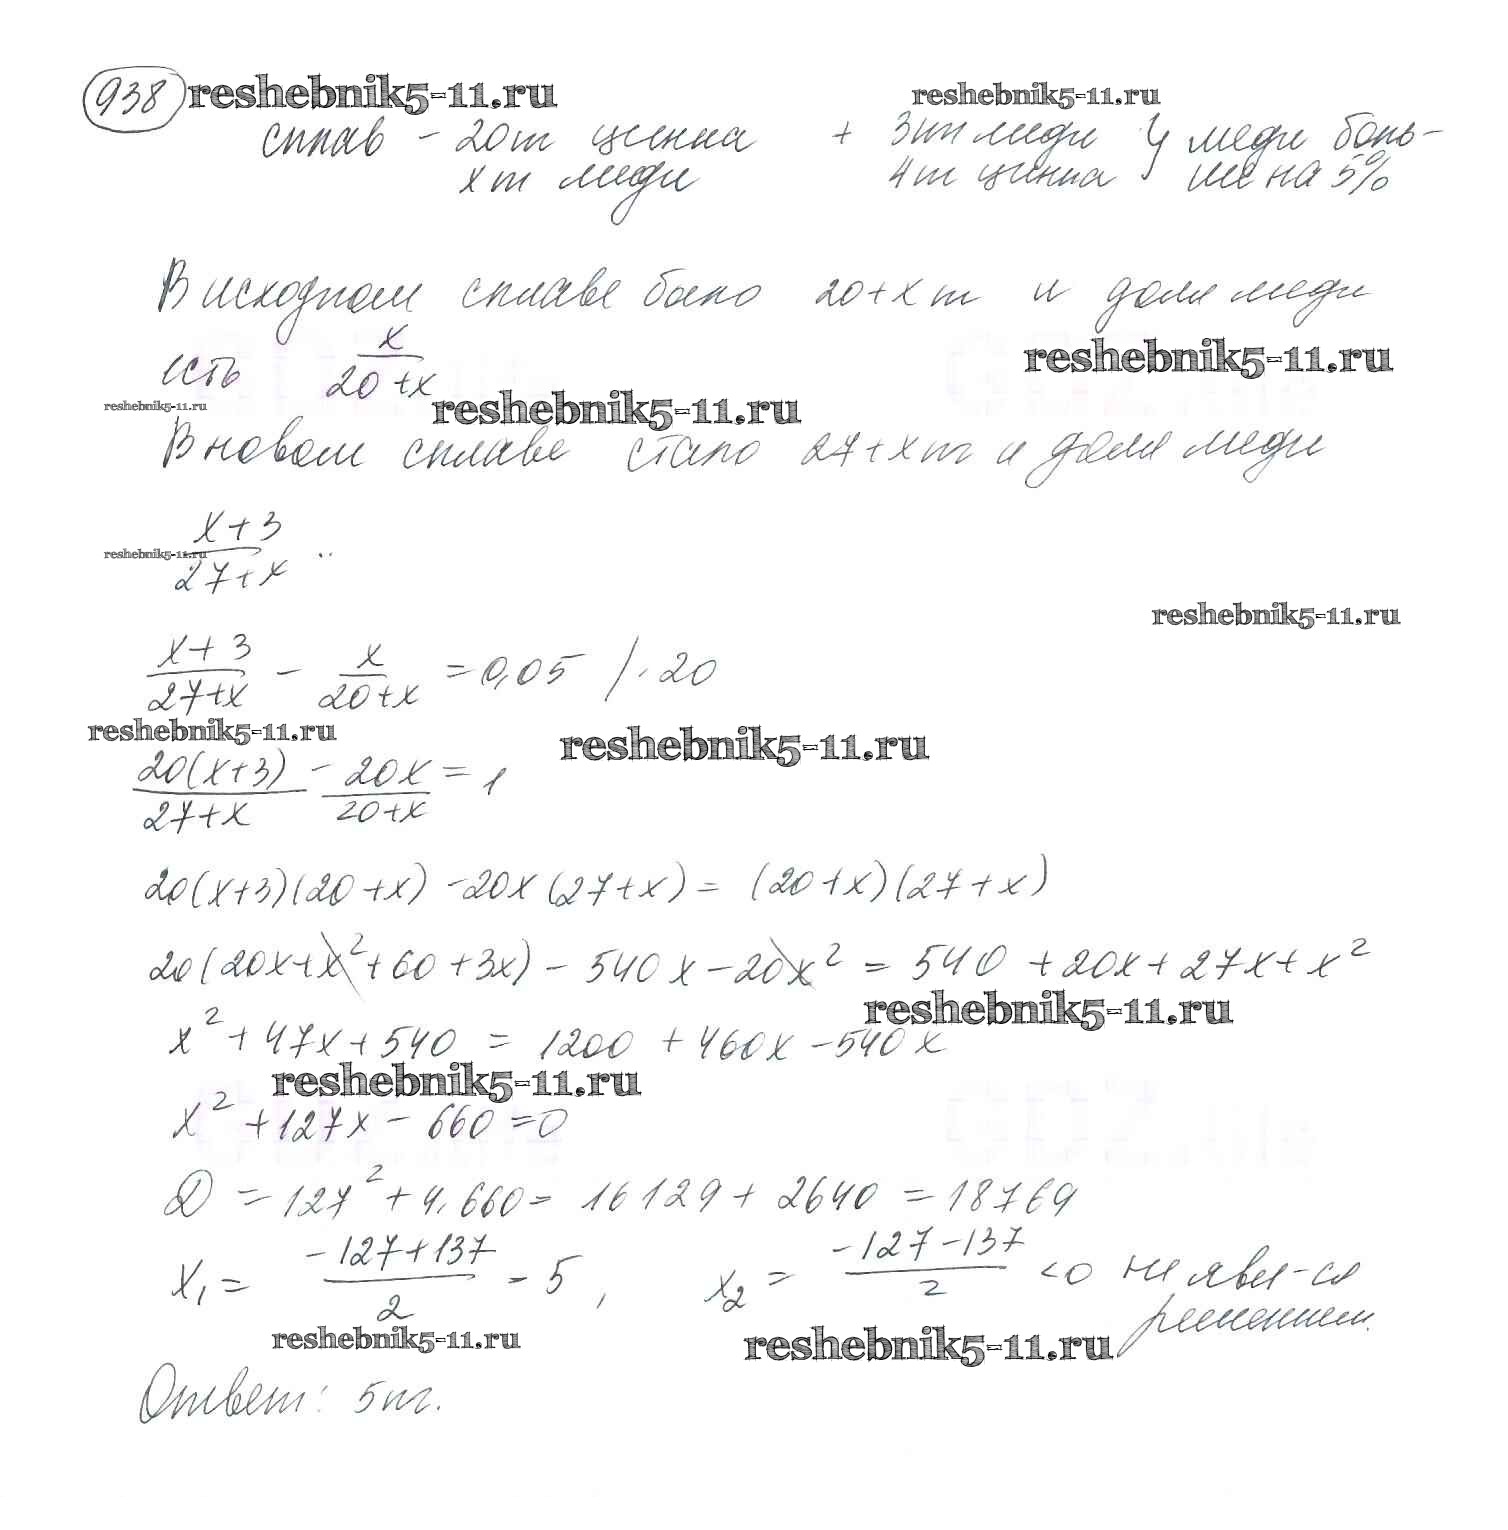 938 reshebnik5-11.ru reshebnik5-11.ru
сплав - 20т цинка + 3т меди } меди боль-
х т меди 4т цинка ше на 5%
В исходном сплаве было 20+х т и доля меди
есть x/(20+x) reshebnik5-11.ru
reshebnik5-11.ru reshebnik5-11.ru
В новом сплаве стало 27+х т и доля меди
(x+3)/(27+x)
reshebnik5-11.ru
reshebnik5-11.ru
(x+3)/(27+x) - x/(20+x) = 0,05 /·20
reshebnik5-11.ru reshebnik5-11.ru
20(x+3)/(27+x) - 20x/(20+x) = 1
20(x+3)(20+x) - 20x(27+x) = (20+x)(27+x)
20(20x+x²+60+3x) - 540x - 20x² = 540 + 20x + 27x + x²
reshebnik5-11.ru
x² + 47x + 540 = 1200 + 460x - 540x
reshebnik5-11.ru
x² + 127x - 660 = 0
D = 127² + 4·660 = 16129 + 2640 = 18769
x₁ = (-127+137)/2 = 5, x₂ = (-127-137)/2 <0 не явл-ся
решением.
reshebnik5-11.ru reshebnik5-11.ru
Ответ: 5т.